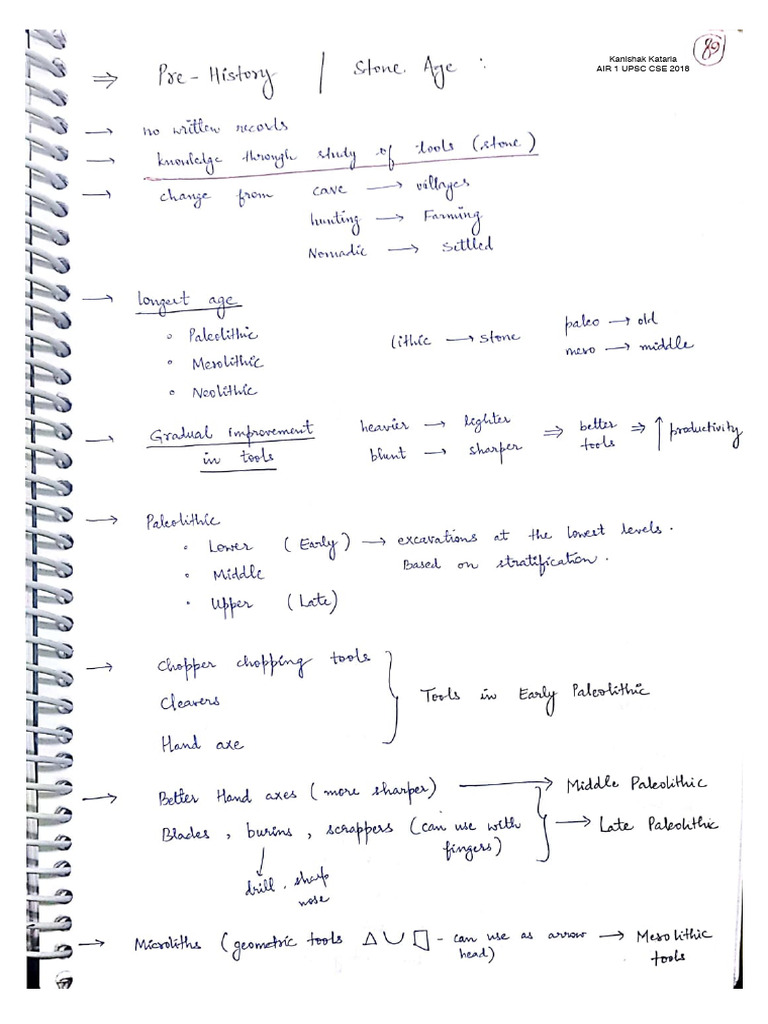 Kanishak Kataria
AIR 1 UPSC CSE 2018
89
⇒ Pre-History / Stone Age :
→ no written records
→ knowledge through study of tools (stone)
→ change from cave → villages
hunting → Farming
Nomadic → Settled
→ longest age
◦ Paleolithic
◦ Mesolithic
◦ Neolithic
lithic → stone
paleo → old
meso → middle
→ Gradual improvement in tools
heavier → lighter
blunt → sharper
⇒ better tools ⇒ ↑ productivity
→ Paleolithic
• Lower (Early) → excavations at the lowest levels.
Based on stratification.
• Middle
• Upper (Late)
→ Chopper chopping tools
Cleavers
Hand axe
} Tools in Early Paleolithic
→ Better Hand axes (more sharper) → Middle Paleolithic
Blades, burins, scrappers (can use with fingers) } → Late Paleolithic
↓
drill. sharp nose
→ Microliths (geometric tools △ ∪ ▯ - can use as arrow head) → Mesolithic tools